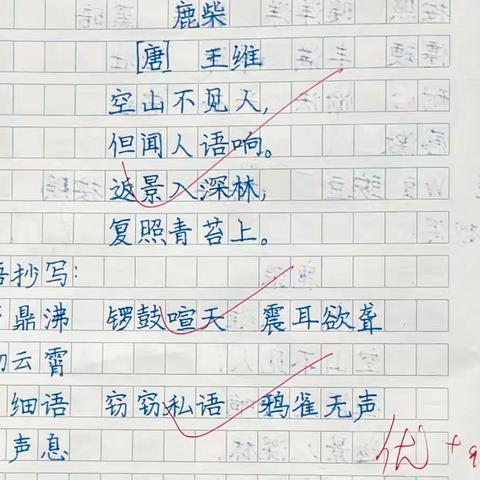 鹿柴
[唐] 王维
空山不见人,
但闻人语响。
返景入深林,
复照青苔上。
语抄写:
鼎沸 锣鼓喧天 震耳欲聋
云霄
细语 窃窃私语 鸦雀无声
声息
优+